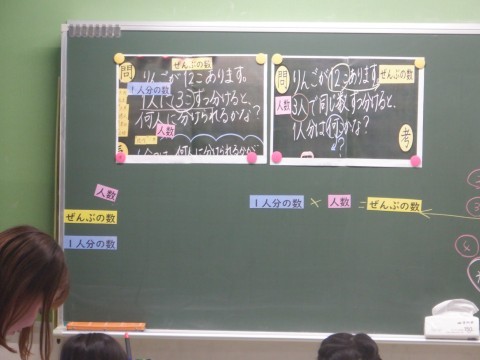 問
ぜんぶの数
りんごが12こあります。
1人分の数
1人に3こずつ分けると、
何人に分けられるかな?
人数
問
りんごが12こあります
ぜんぶの数
人数
3人で同じ数ずつ分けると、
1人分は何こかな?
考
人数
ぜんぶの数
1人分の数
1人分の数 × 人数 = ぜんぶの数